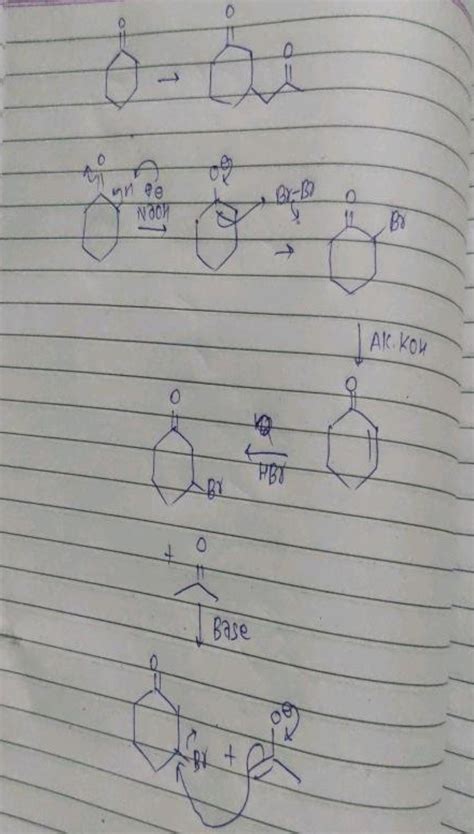 O
O
O
→
O
H
⊖
NaOH
→
O⊖
Br-Br
→
O
Br
Alc.KOH
O
HBr
O
Br
+
O
Base
O
Br
+
O⊖